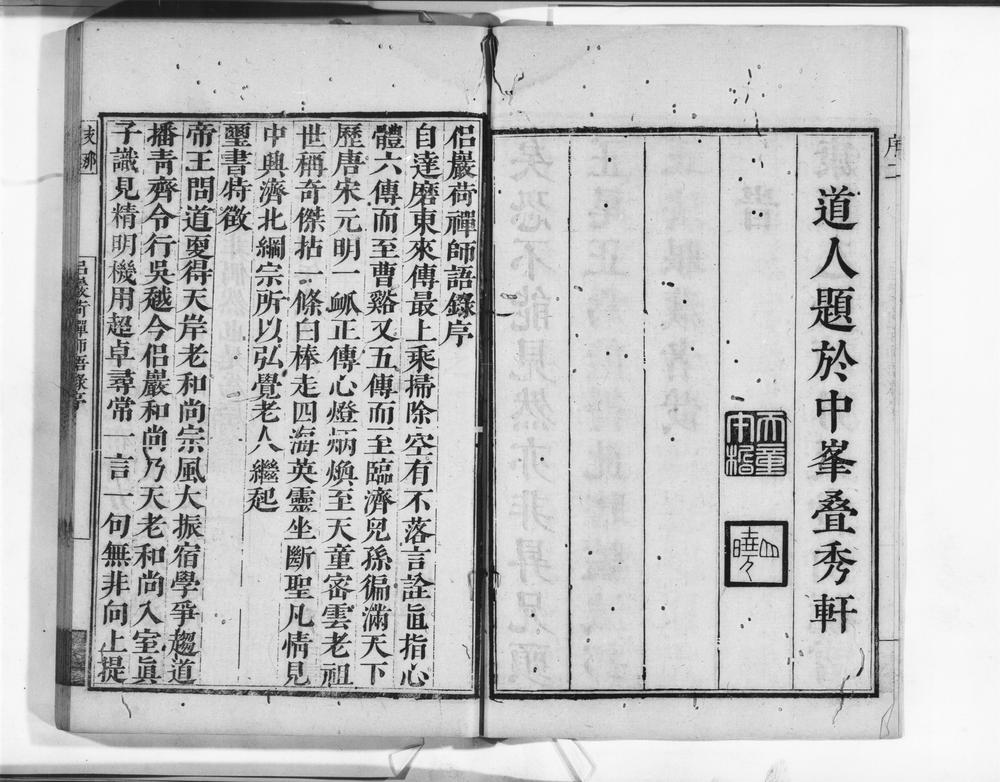 序二
道人題於中峯叠秀軒
侣巖荷禪師語錄序
自達磨東來傳最上乘掃除空有不落言詮直指心
體六傳而至曹谿又五傳而至臨濟兒孫徧滿天下
歷唐宋元明一衇正傳心燈炳煥至天童密雲老祖
世稱奇傑拈一條白棒走四海英靈坐斷聖凡情見
中興濟北綱宗所以弘覺老人繼起
璽書特徵
帝王問道叓得天岸老和尚宗風大振宿學爭趨道
播青齊令行吳越今侣巖和尚乃天老和尚入室眞
子識見精明機用超卓尋常一言一句無非向上提
支那
侣巖荷禪師語錄序